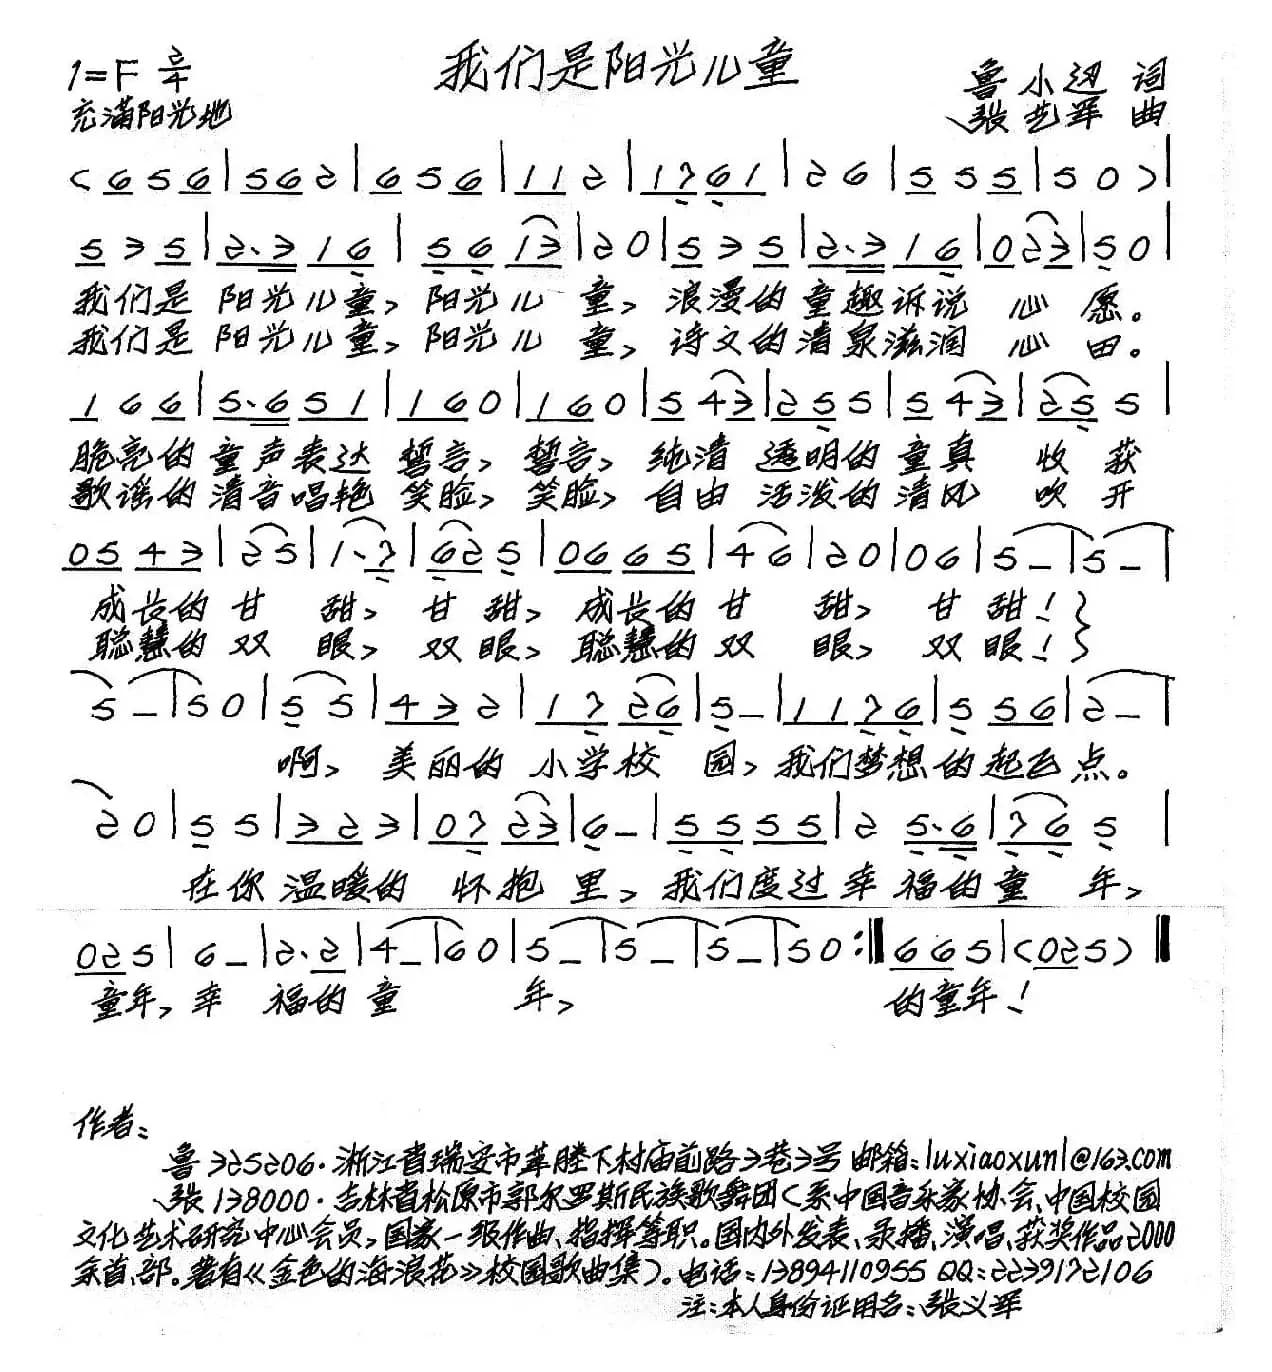 我们是阳光儿童
1=F 2/4
充满阳光地
鲁小 词
张艺军 曲
(6 5 6 | 5 6 2 | 6 5 6 | 1 1 2 | 1 7 6 1 | 2 6 | 5 5 5 | 5 0 ) |
5 3 5 | 2. 3 1 6 | 5 6 1 3 | 2 0 | 5 3 5 | 2. 3 1 6 | 0 2 3 | 5 0 |
我们是 阳光儿童, 阳光儿 童, 浪漫的童趣诉说 心 愿。
我们是 阳光儿童, 阳光儿 童, 诗文的清泉滋润 心 田。
1 6 6 | 5. 6 5 1 | 1 6 0 | 1 6 0 | 5 4 3 | 2 5 5 | 5 4 3 | 2 5 5 |
脆亮的 童声表达 誓言, 誓言, 纯清 透明的童真 收 获
歌谣的 清音唱艳 笑脸, 笑脸, 自由 活泼的清风 吹 开
0 5 4 3 | 2 5 | 1. 7 | 6 2 5 | 0 6 6 5 | 4 6 | 2 0 | 0 6 | 5 – | 5 – |
成长的 甘 甜, 甘 甜, 成长的 甘 甜, 甘 甜! }
聪慧的 双 眼, 双 眼, 聪慧的 双 眼, 双 眼! }
5 – | 5 0 | 5 5 | 4 3 2 | 1 7 2 6 | 5 – | 1 1 7 6 | 5 5 6 | 2 – |
啊, 美丽的 小学校 园, 我们梦想的起飞点。
2 0 | 5 5 | 3 2 3 | 0 7 2 3 | 6 – | 5 5 5 5 | 2 5. 6 | 7 6 5 |
在你 温暖的 怀抱 里, 我们度过 幸福的童 年,
0 2 5 | 6 – | 2. 2 | 4 – | 6 0 | 5 – | 5 – | 5 – | 5 0 :‖ 6 6 5 | (0 2 5) ‖
童年, 幸 福的 童 年, 的童年!
作者:
鲁 325206·浙江省瑞安市莘塍下村庙前路3巷3号 邮箱:luxiaoxun1@163.com
张 138000·吉林省松原市郭尔罗斯民族歌舞团(系中国音乐家协会、中国校园
文化艺术研究中心会员,国家一级作曲、指挥等职。国内外发表、录播、演唱、获奖作品2000
余首、部。著有《金色的海浪花》校园歌曲集)。电话:13894110955 QQ:2239172106
注:本人身份证用名:张义军